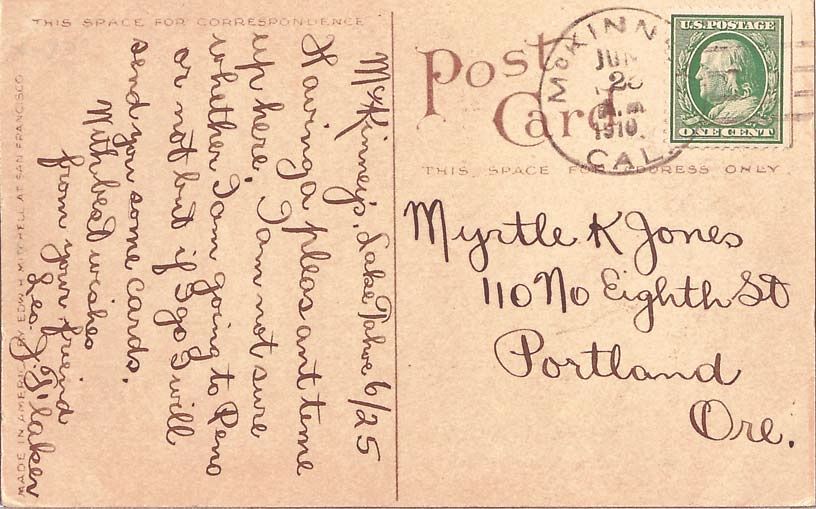 THIS SPACE FOR CORRESPONDENCE
McKinney's, Lake Tahoe 6/25
Having a pleasant time
up here. I am not sure
whether I am going to Reno
or not but if I go I will
send you some cards.
With best wishes
from your friend
Leo J.
MADE IN AMERICA BY EDW. H. MITCHELL AT SAN FRANCISCO
Post
Card
THIS SPACE FOR ADDRESS ONLY.
McKINN
JUN
1910
CAL.
U.S. POSTAGE
ONE CENT
Myrtle K Jones
110 No Eighth St
Portland
Ore.